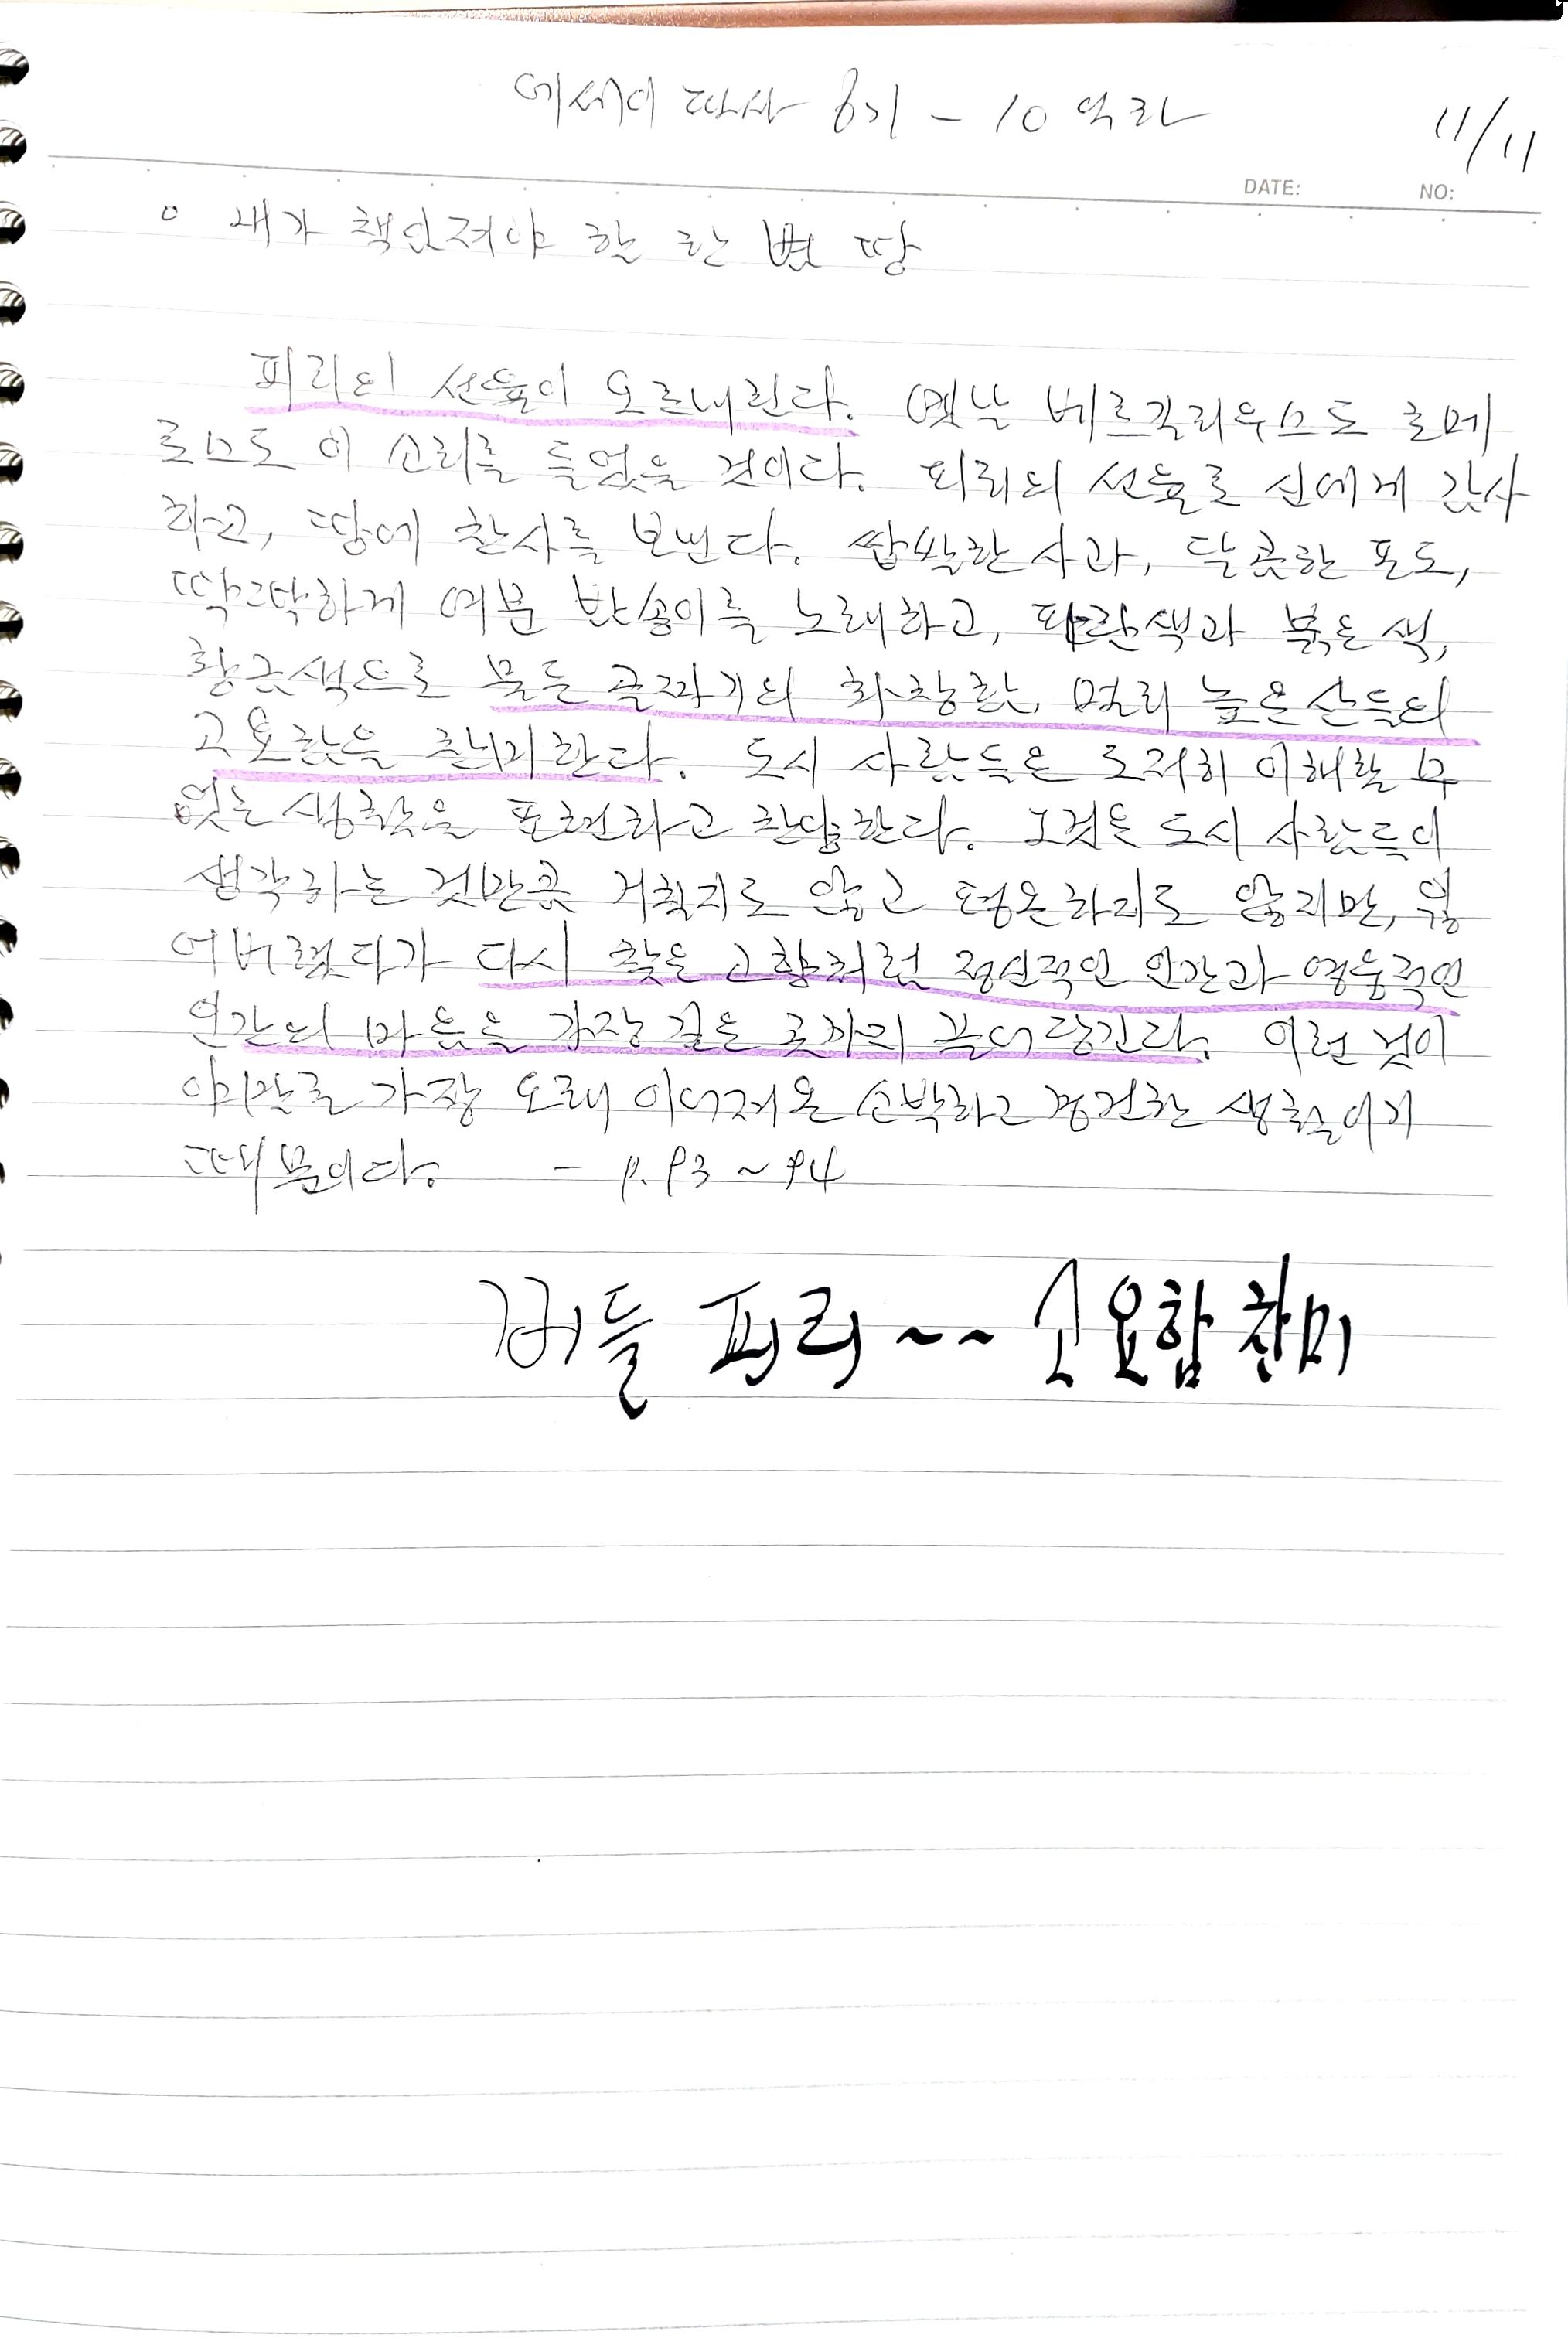 에세이 필사 8기 - 10일차 11/11
DATE: NO:
○ 내가 책임져야 할 한 뼘 땅
피리의 선율이 오르내린다. 옛날 베르길리우스도 호메
로스도 이 소리를 들었을 것이다. 피리의 선율로 신에게 감사
하고, 땅에 찬사를 보낸다. 쌉쌀한 사과, 달콤한 포도,
딱딱하게 여문 밤송이를 노래하고, 파란색과 붉은색,
황금색으로 물든 골짜기의 화창함, 멀리 높은 산들의
고요함을 찬미한다. 도시 사람들은 도저히 이해할 수
없는 생활을 표현하고 찬양한다. 그것은 도시 사람들이
생각하는 것만큼 거칠지도 않고 평온하지도 않지만, 잃
어버렸다가 다시 찾은 고향처럼 정신적인 인간과 영웅적인
인간의 마음을 가장 깊은 곳까지 끌어당긴다. 이런 것이
야말로 가장 오래 이어져온 소박하고 경건한 생활이기
때문이다. - p.93~94
버들 피리~~ 고요함 찬미